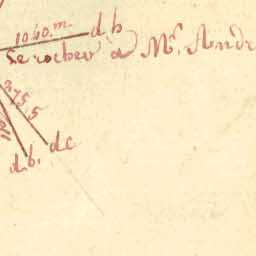 1040.m d h
Le rocher a Mr. Andr
2755
d.b. dc